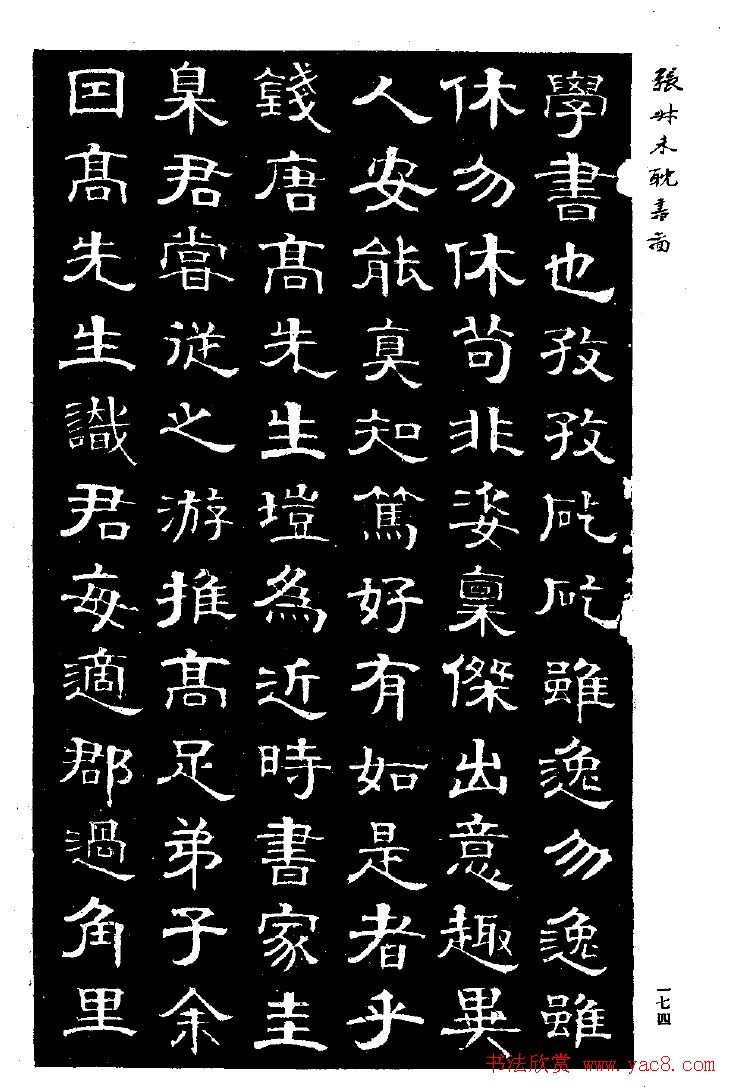 張叔未耽
學書也孜孜矻矻雖逸勿逸雖
休勿休苟非姿稟傑出意趣異
人安能真知篤好有如是者乎
錢唐髙先生塏為近時書家圭
臬君嘗從之游推髙足弟子余
囙髙先生識君每適郡過角里
一七四
书法欣赏 www.yac8.com